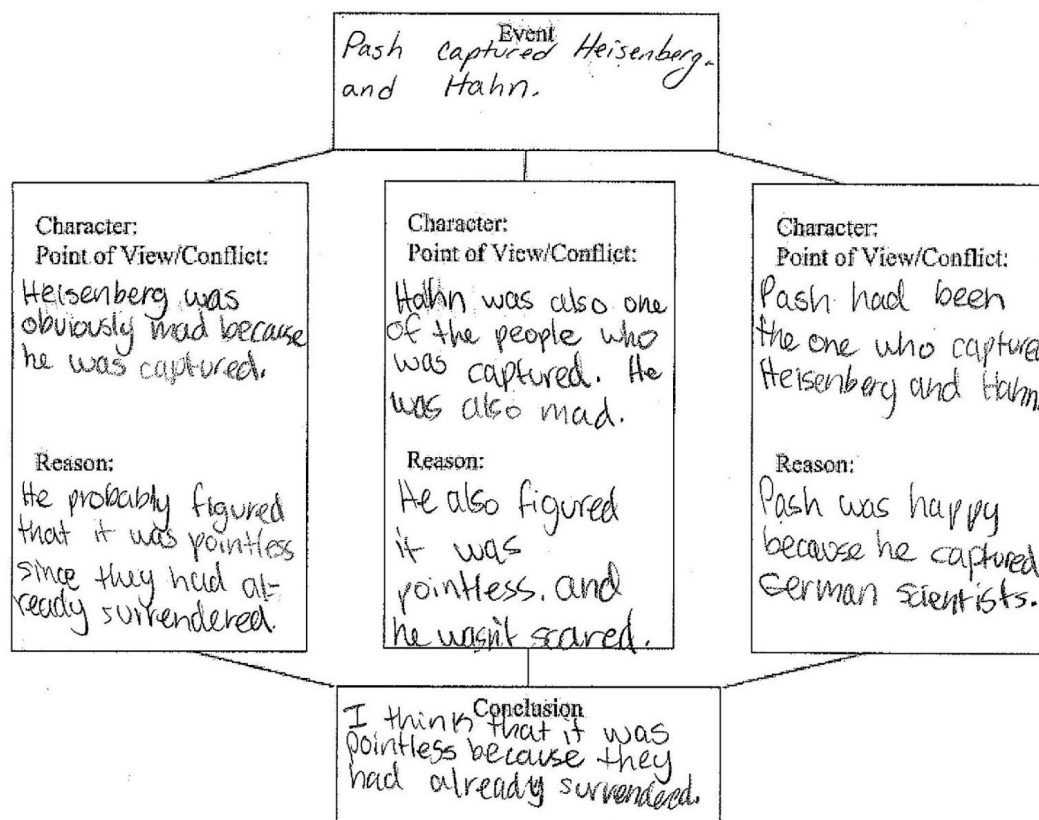 Event
Pash captured Heisenberg.
and Hahn.
Character:
Point of View/Conflict:
Heisenberg was
obviously mad because
he was captured.
Reason:
He probably figured
that it was pointless
since they had al-
ready surrendered.
Character:
Point of View/Conflict:
Hahn was also one
of the people who
was captured. He
was also mad.
Reason:
He also figured
it was
pointless. and
he wasn't scared.
Character:
Point of View/Conflict:
Pash had been
the one who captured
Heisenberg and Hahn.
Reason:
Pash was happy
because he captured
German scientists.
Conclusion
I think that it was
pointless because they
had already surrendered.